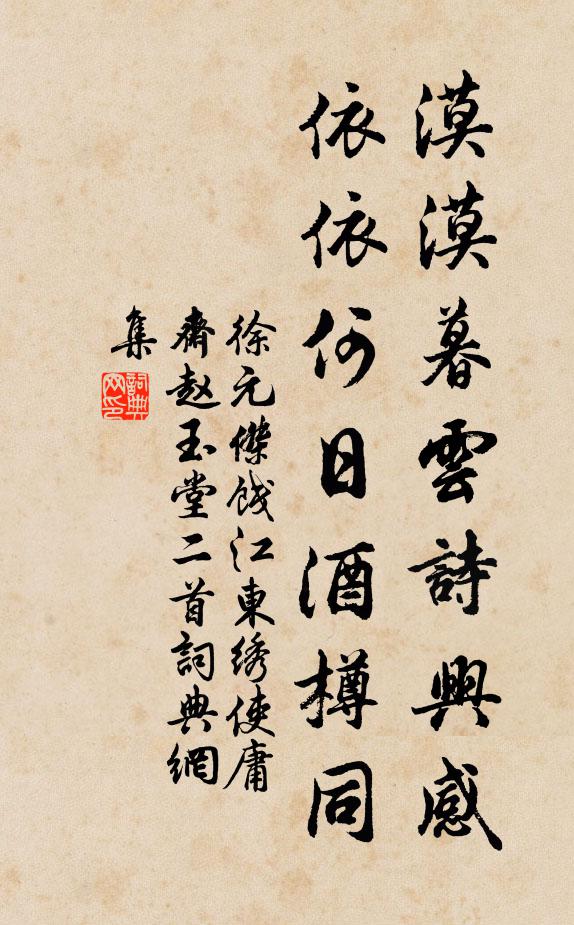 漠漠暮雲詩興感
依依何日酒樽同
徐元傑餞江東绣使庸
齋赵玉堂二首詞典網
集
詞典
网印